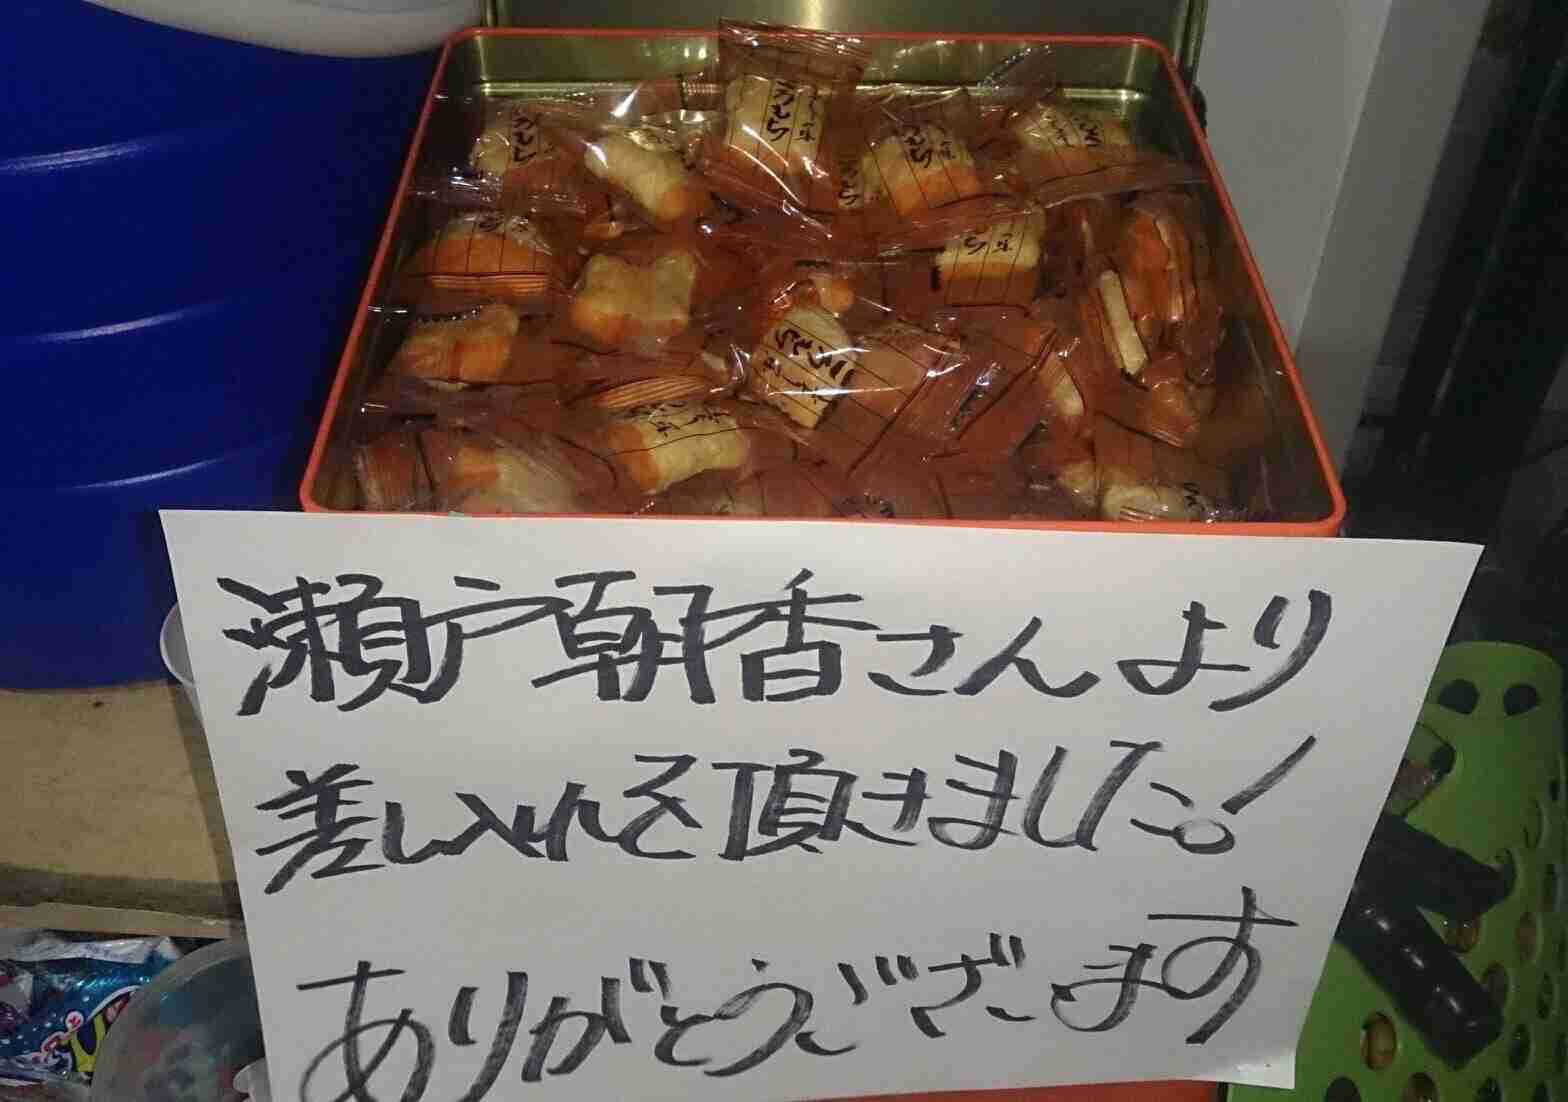 瀬戸朝香さんより
差し入れを頂きました!
ありがとうございます